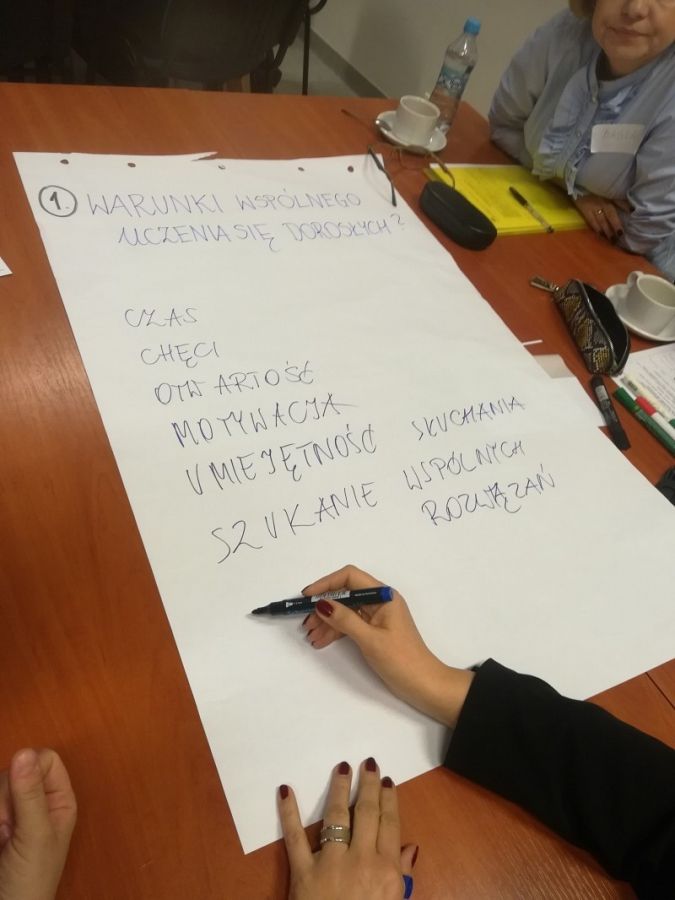 1. WARUNKI WSPÓLNEGO
UCZENIA SIĘ DOROSŁYCH?
CZAS
CHĘCI
OTWARTOŚĆ
MOTYWACJA
UMIEJĘTNOŚĆ SŁUCHANIA
SZUKANIE WSPÓLNYCH
ROZWIĄZAŃ